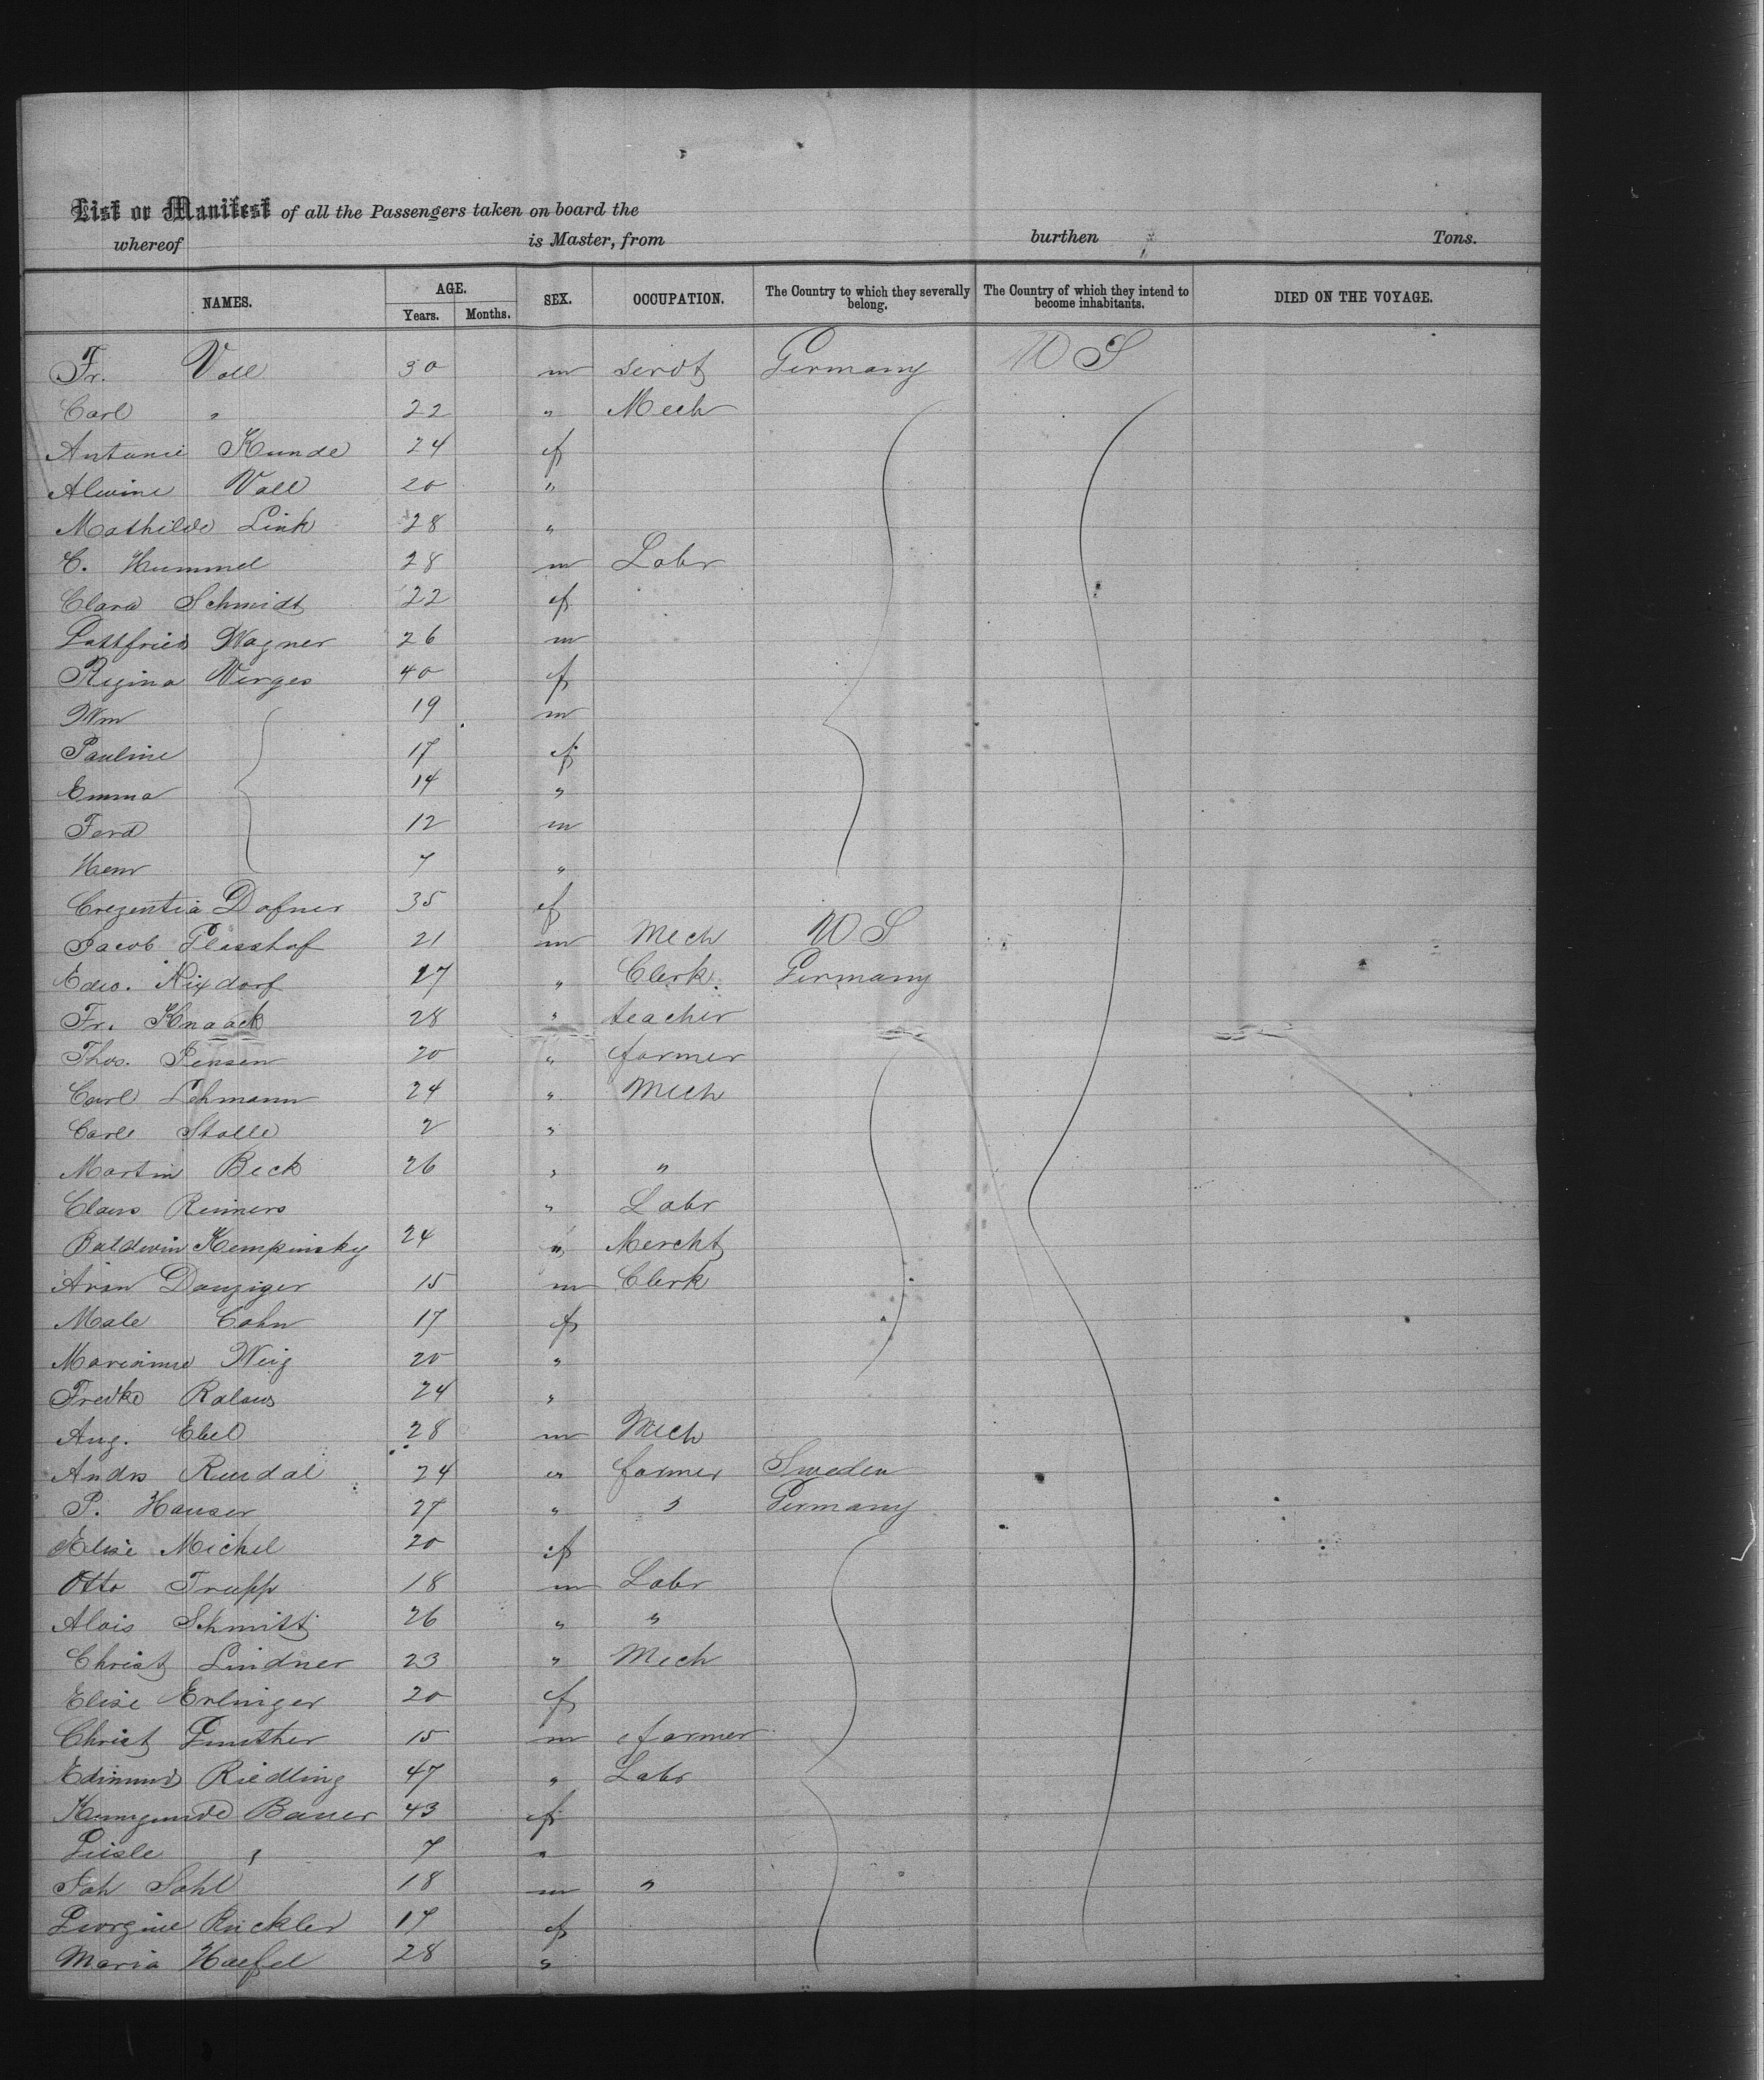 List or Manifest of all the Passengers taken on board the
whereof is Master, from burthen Tons.
NAMES. AGE. Years. Months. SEX. OCCUPATION. The Country to which they severally belong. The Country of which they intend to become inhabitants. DIED ON THE VOYAGE.
Fr. Voll 30 m servt Germany U S
Carl " 22 " Mech
Antonie Kunde 24 f
Alwine Voll 20 "
Mathilde Link 28 "
C. Hummel 28 m Labr
Clara Schmidt 22 f
Gottfried Wagner 26 m
Regina Verges 40 f
Wm 19 m
Pauline 17 f
Emma 14 "
Ferd 12 m
Henr 7 "
Crezentia Dafner 35 f
Jacob Glasshof 21 m Mech U S
Edw. Nixdorf 17 " Clerk Germany
Fr. Knaack 28 " teacher
Thos. Jensen 20 " farmer
Carl Lehmann 24 " Mech
Carl Stolle 2 "
Martin Beck 26 " "
Claus Reimers " Labr
Baldwin Kempinsky 24 " Mercht
Aron Danziger 15 m Clerk
Male Cohn 17 f
Marianne Weig 20 "
Fredke 24 "
Aug. Ebel 28 m Mech
Andrs Rundal 24 " farmer Sweden
P. Hauser 27 " " Germany
Elise Michel 20 f
Otto Trupp 18 m Labr
Alois Schmitt 26 " "
Christ Lindner 23 " Mech
Elise Erlinger 20 f
Christ Gunther 15 m farmer
Edmund Riedling 47 " Labr
Kunigunde Bauer 43 f
" 7 "
Joh Sohl 18 m "
Georgine Rückler 17 f
Maria Haefel 28 "